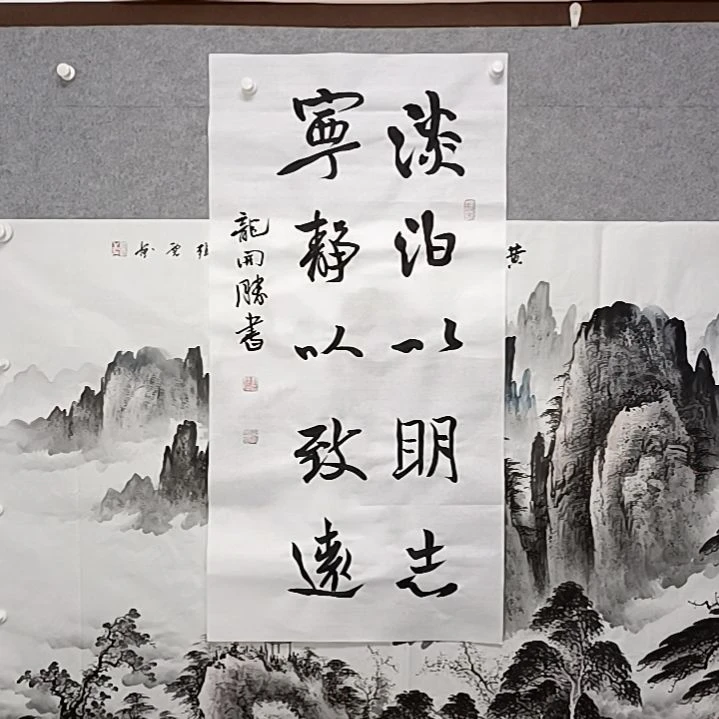 淡泊以眀志
寧静以致遠
龍開勝書
黄